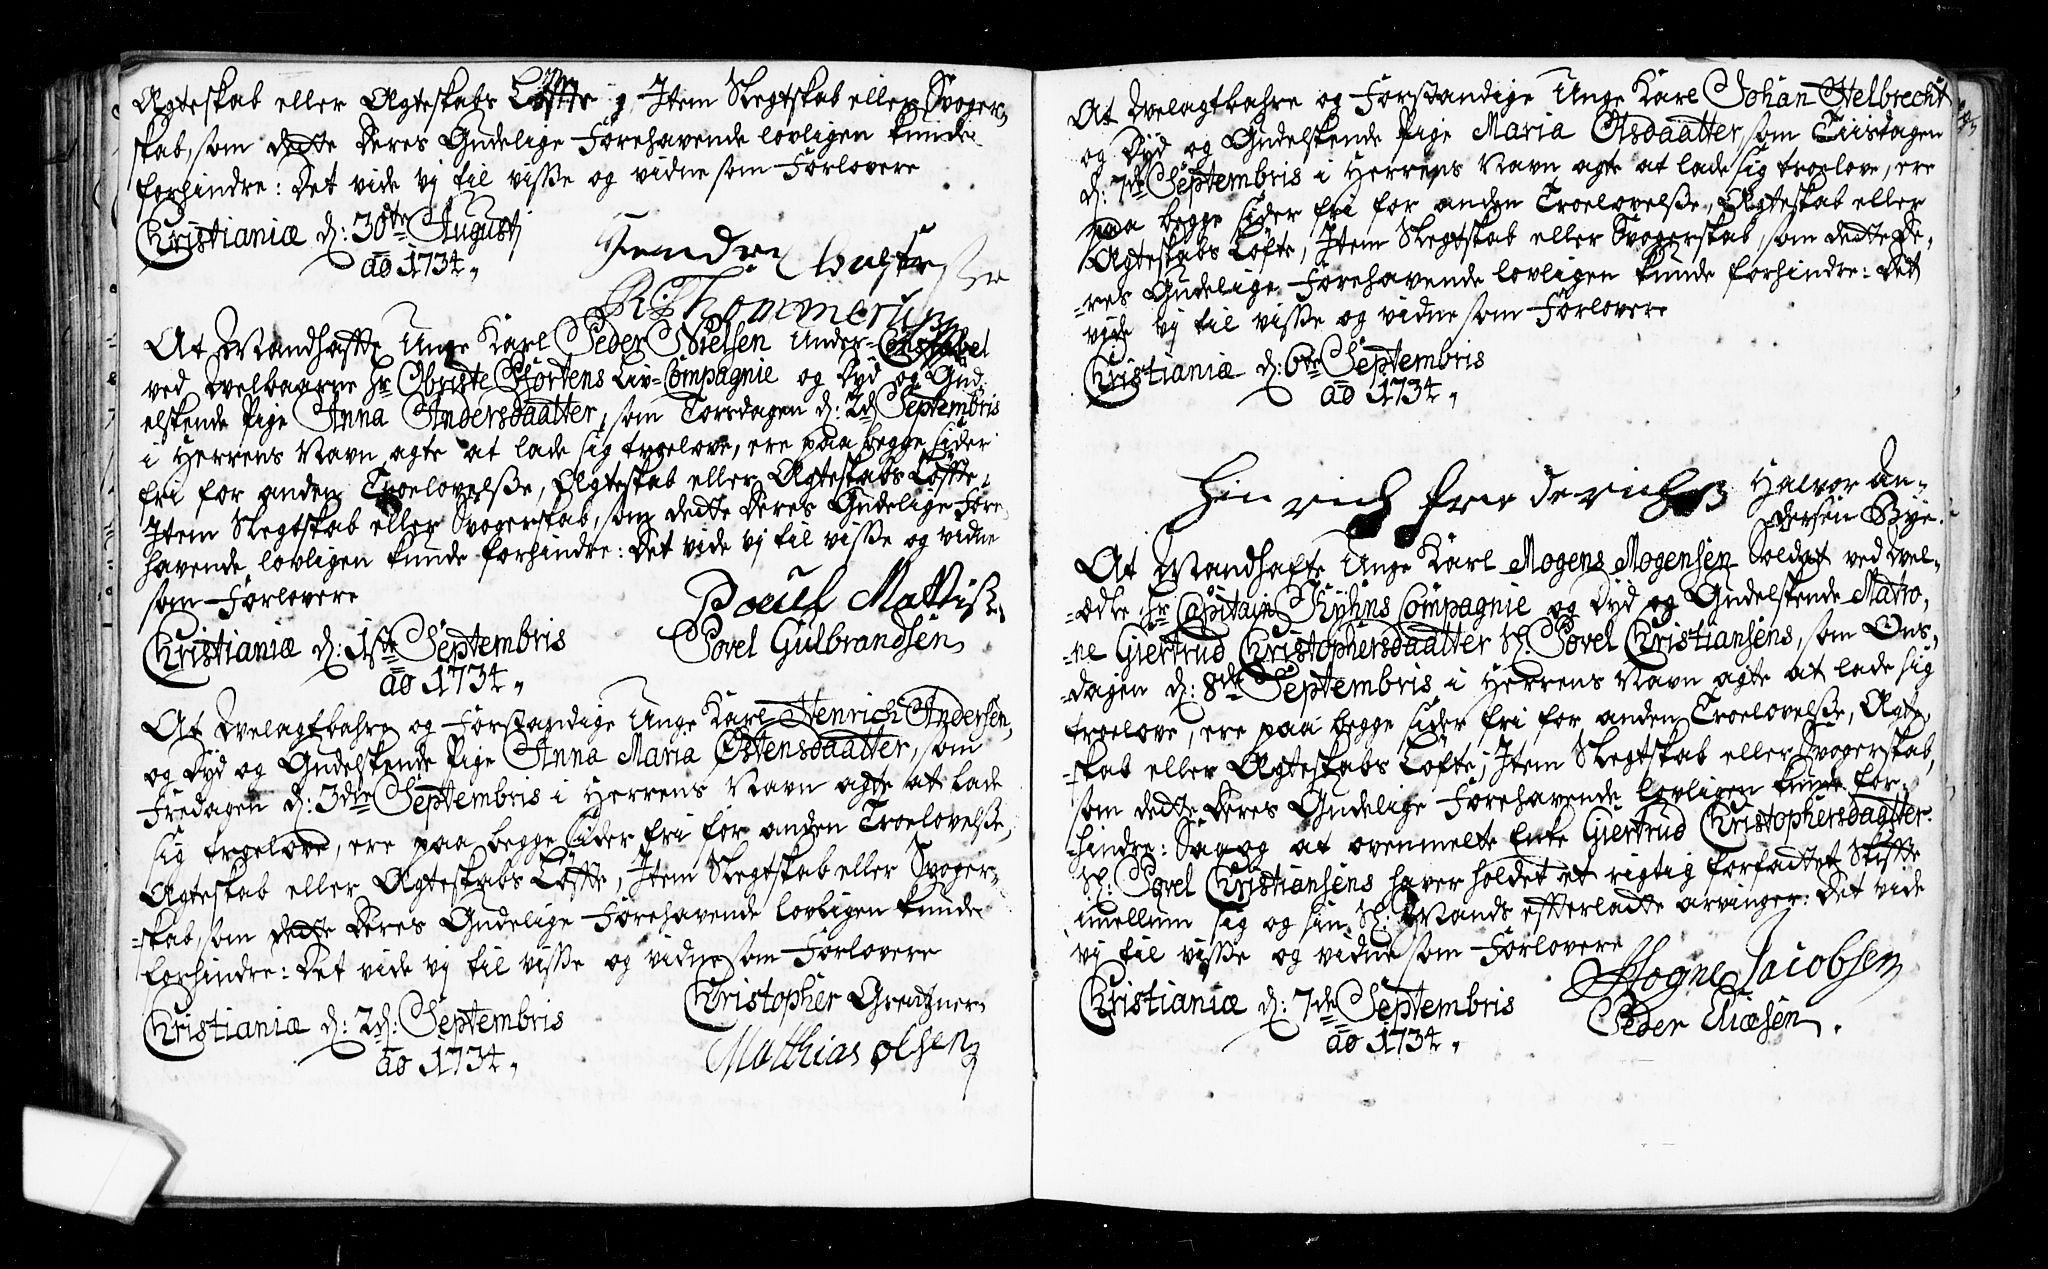 Ægteskab eller Ægteskabs Løffte, Item Slegtskab eller Svoger-
skab, som dette Deres Gudelige Forehavende lovligen kunde
forhindre: Det vide vj til visse og vidne som Forlovere
Christianiæ d: 30te Augustj
ao 1734.
R: Thommerup
At Mandhaffte Unge Karl Peder Nielsen Under-Constabel
ved Velbaarne Hr Obriste Stortens Liv-Compagnie og Dyd og Gud-
elskende Pige Anna Andersdaatter, som Torsdagen d: 2d Septembris
i Herrens Navn agte at lade sig troelove, ere paa begge sider
fri for anden Troelovelse, Ægteskab eller Ægteskabs Løffte,
Item Slegtskab eller Svogerskab, som dette Deres Gudelige Fore-
havende lovligen kunde forhindre: Det vide vj til visse og vidne
som Forlovere
Christianiæ d: 1ste Septembris
ao 1734.
Pouel Mattisen
Povel Gulbrandsen
At Velagtbahre og Forstandige Unge Karl Henrich Andersen,
og Dyd og Gudelskende Pige Anna Maria Østensdaatter, som
Fredagen d: 3die Septembris i Herrens Navn agte at lade
sig troelove, ere paa begge sider fri for anden Troelovelse,
Ægteskab eller Ægteskabs Løffte, Item Slegtskab eller Svoger-
-skab, som dette Deres Gudelige Forehavende lovligen kunde
forhindre: Det vide vj til visse og vidne som Forlovere
Christianiæ d: 2d: Septembris
ao 1734.
Christopher Gredtzner
Matthias Olsen
At Velagtbahre og Forstandige Unge Karl Johan Helbrecht
og Dyd og Gudelskende Pige Maria Olsdaatter, som Tiisdagen
d: 7de Septembris i Herrens Navn agte at lade sig troelove, ere
paa begge sider fri for anden Troelovelse, Ægteskab eller
Ægteskabs Løfte, Item Slegtskab eller Svogerskab, som dette De-
-res Gudelige Forehavende lovligen kunde forhindre: Det
vide vj til visse og vidne som Forlovere
Christianiæ d: 6te Septembris
ao 1734.
Hinrich friederichs
Halvor An-
dersen Bye.
At Mandhafte Unge Karl Mogens Mogensen Soldat ved Vel-
-ædle Hr Capitain Kyhns Compagnie og Dyd og Gudelskende Matro-
-ne Giertrud Christophersdaatter Sl: Povel Christiansens, som Ons-
-dagen d: 8de Septembris i Herrens Navn agte at lade sig
troelove, ere paa begge sider fri for anden Troelovelse, Ægte-
-skab eller Ægteskabs Løfte, Item Slegtskab eller Svogerskab,
som dette Deres Gudelige Forehavende lovligen kunde for-
-hindre: Saa og at ovenmelte Enke Giertrud Christophersdaatter
Sl: Povel Christiansens haver holdet et rigtig forfattet Skiffte
imellum sig og sin Sl: Mands efterladte arvinger: Det vide
vj til visse og vidne som Forlovere
Christianiæ d: 7de Septembris
ao 1734.
Hogne Jacobsen
Peder Eliæsen.